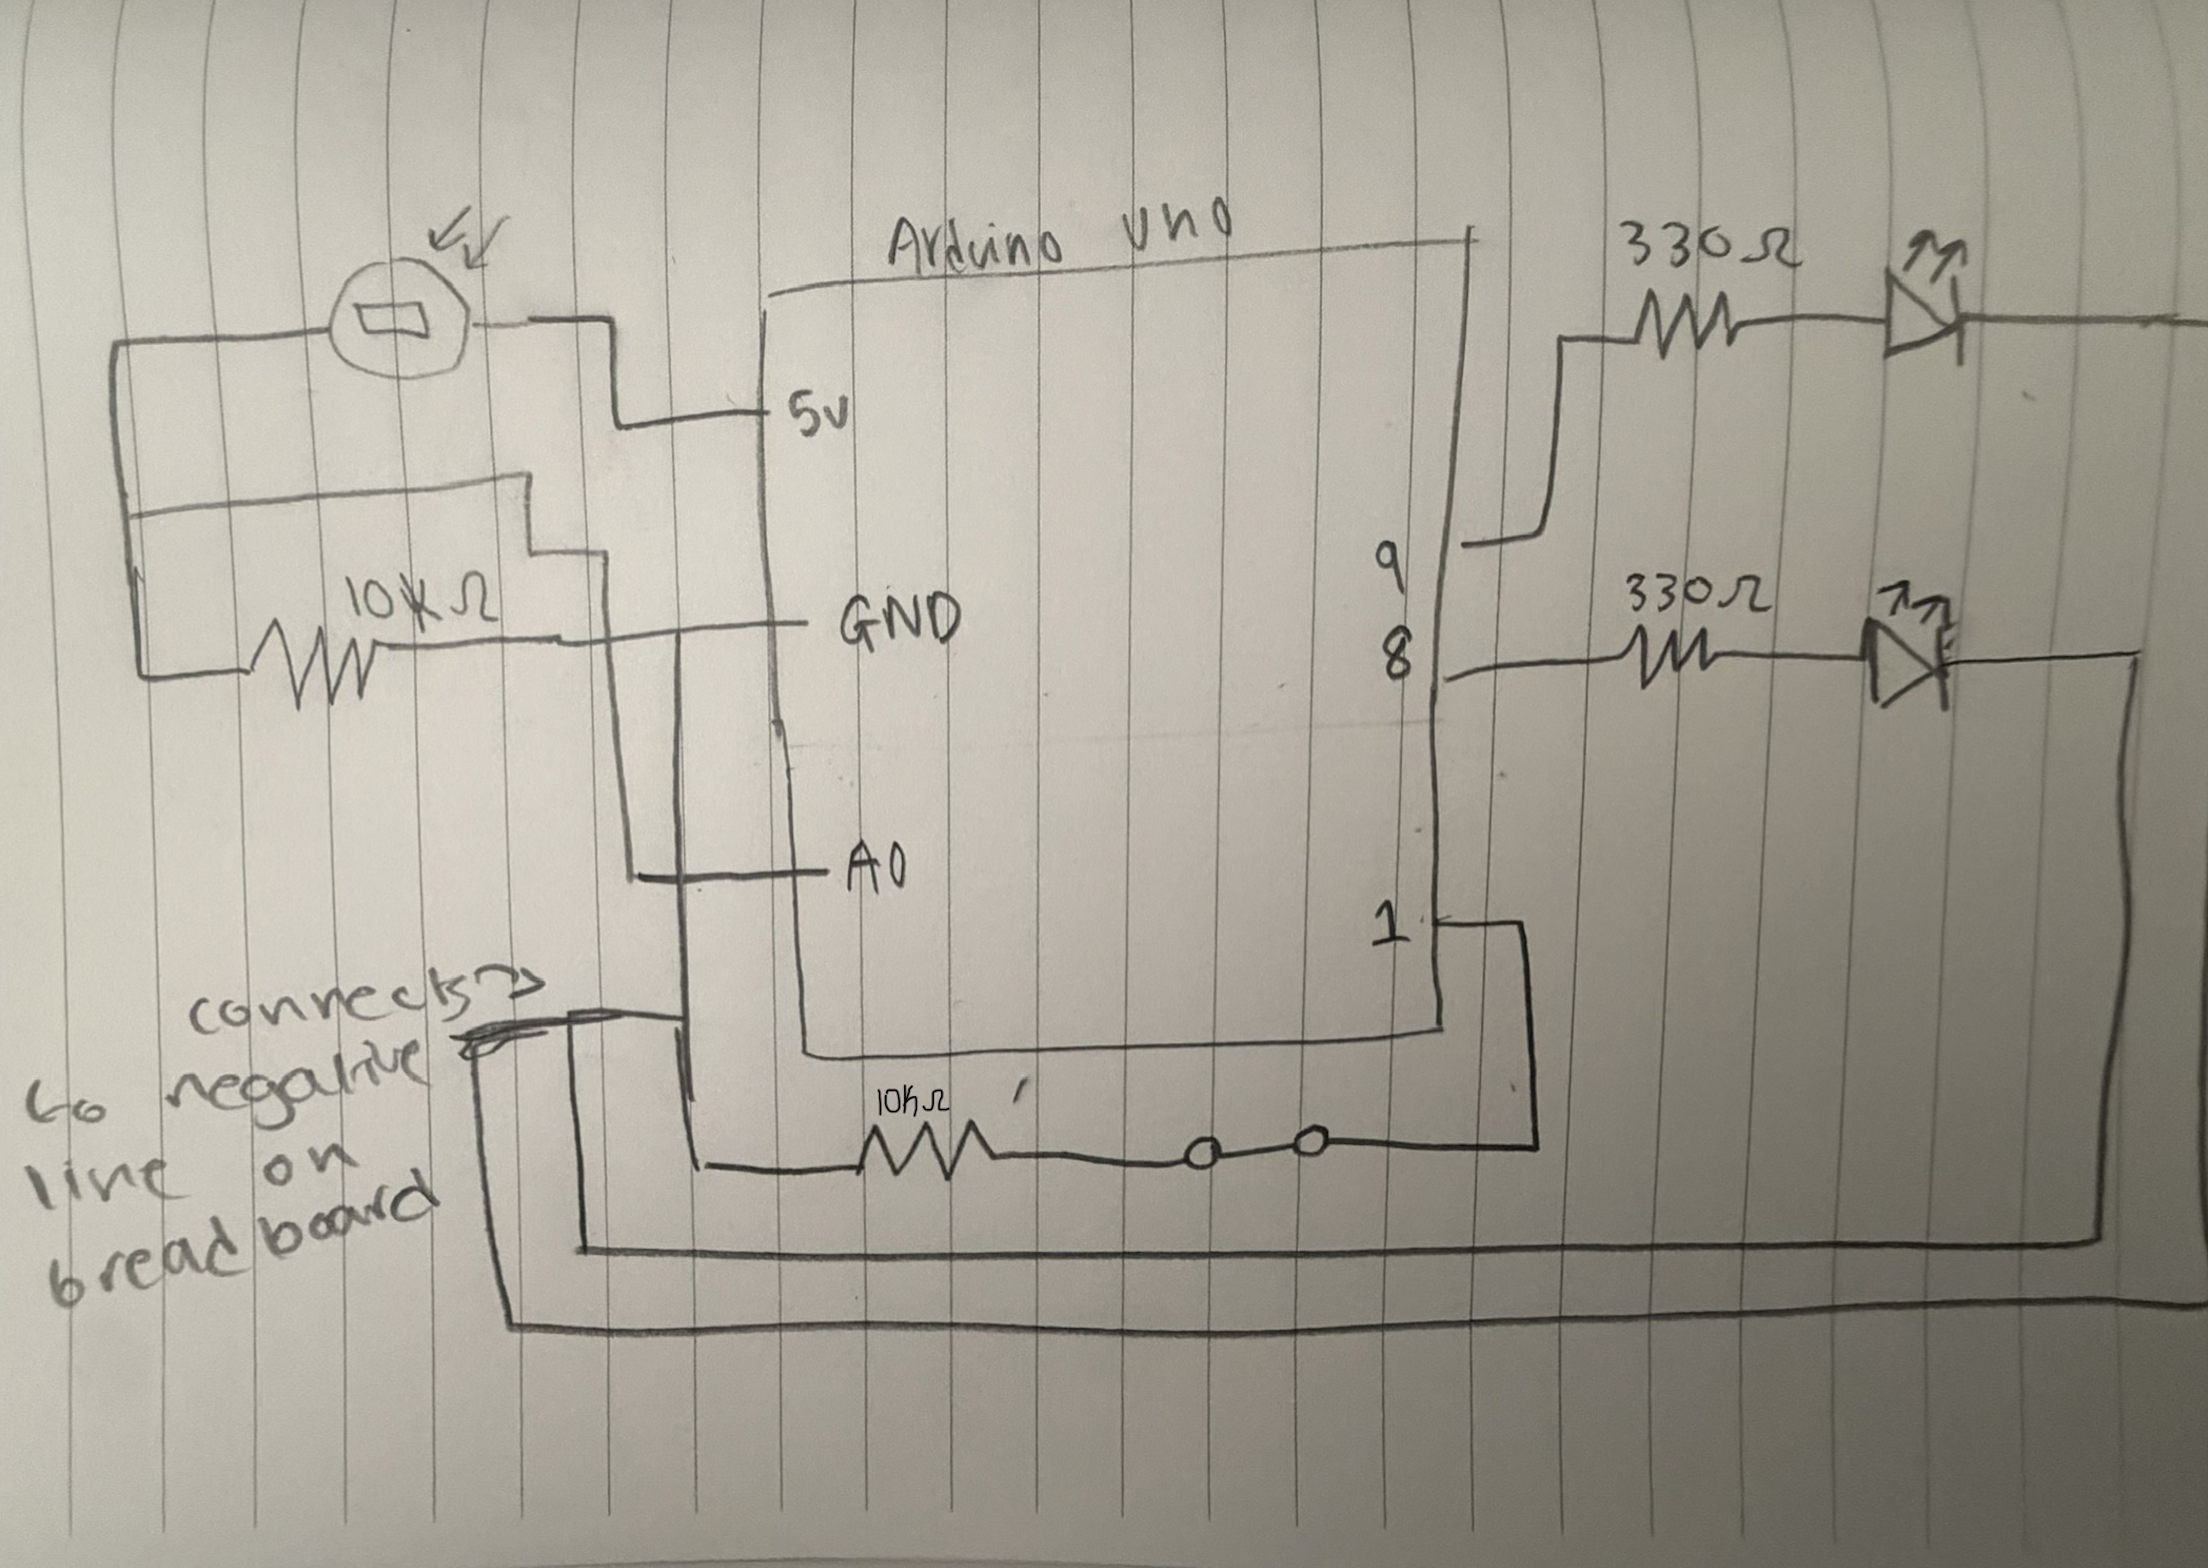 Arduino Uno
330Ω
5v
9
10kΩ
GND
8
330Ω
A0
1
connects
to negative
line on
bread board
10kΩ